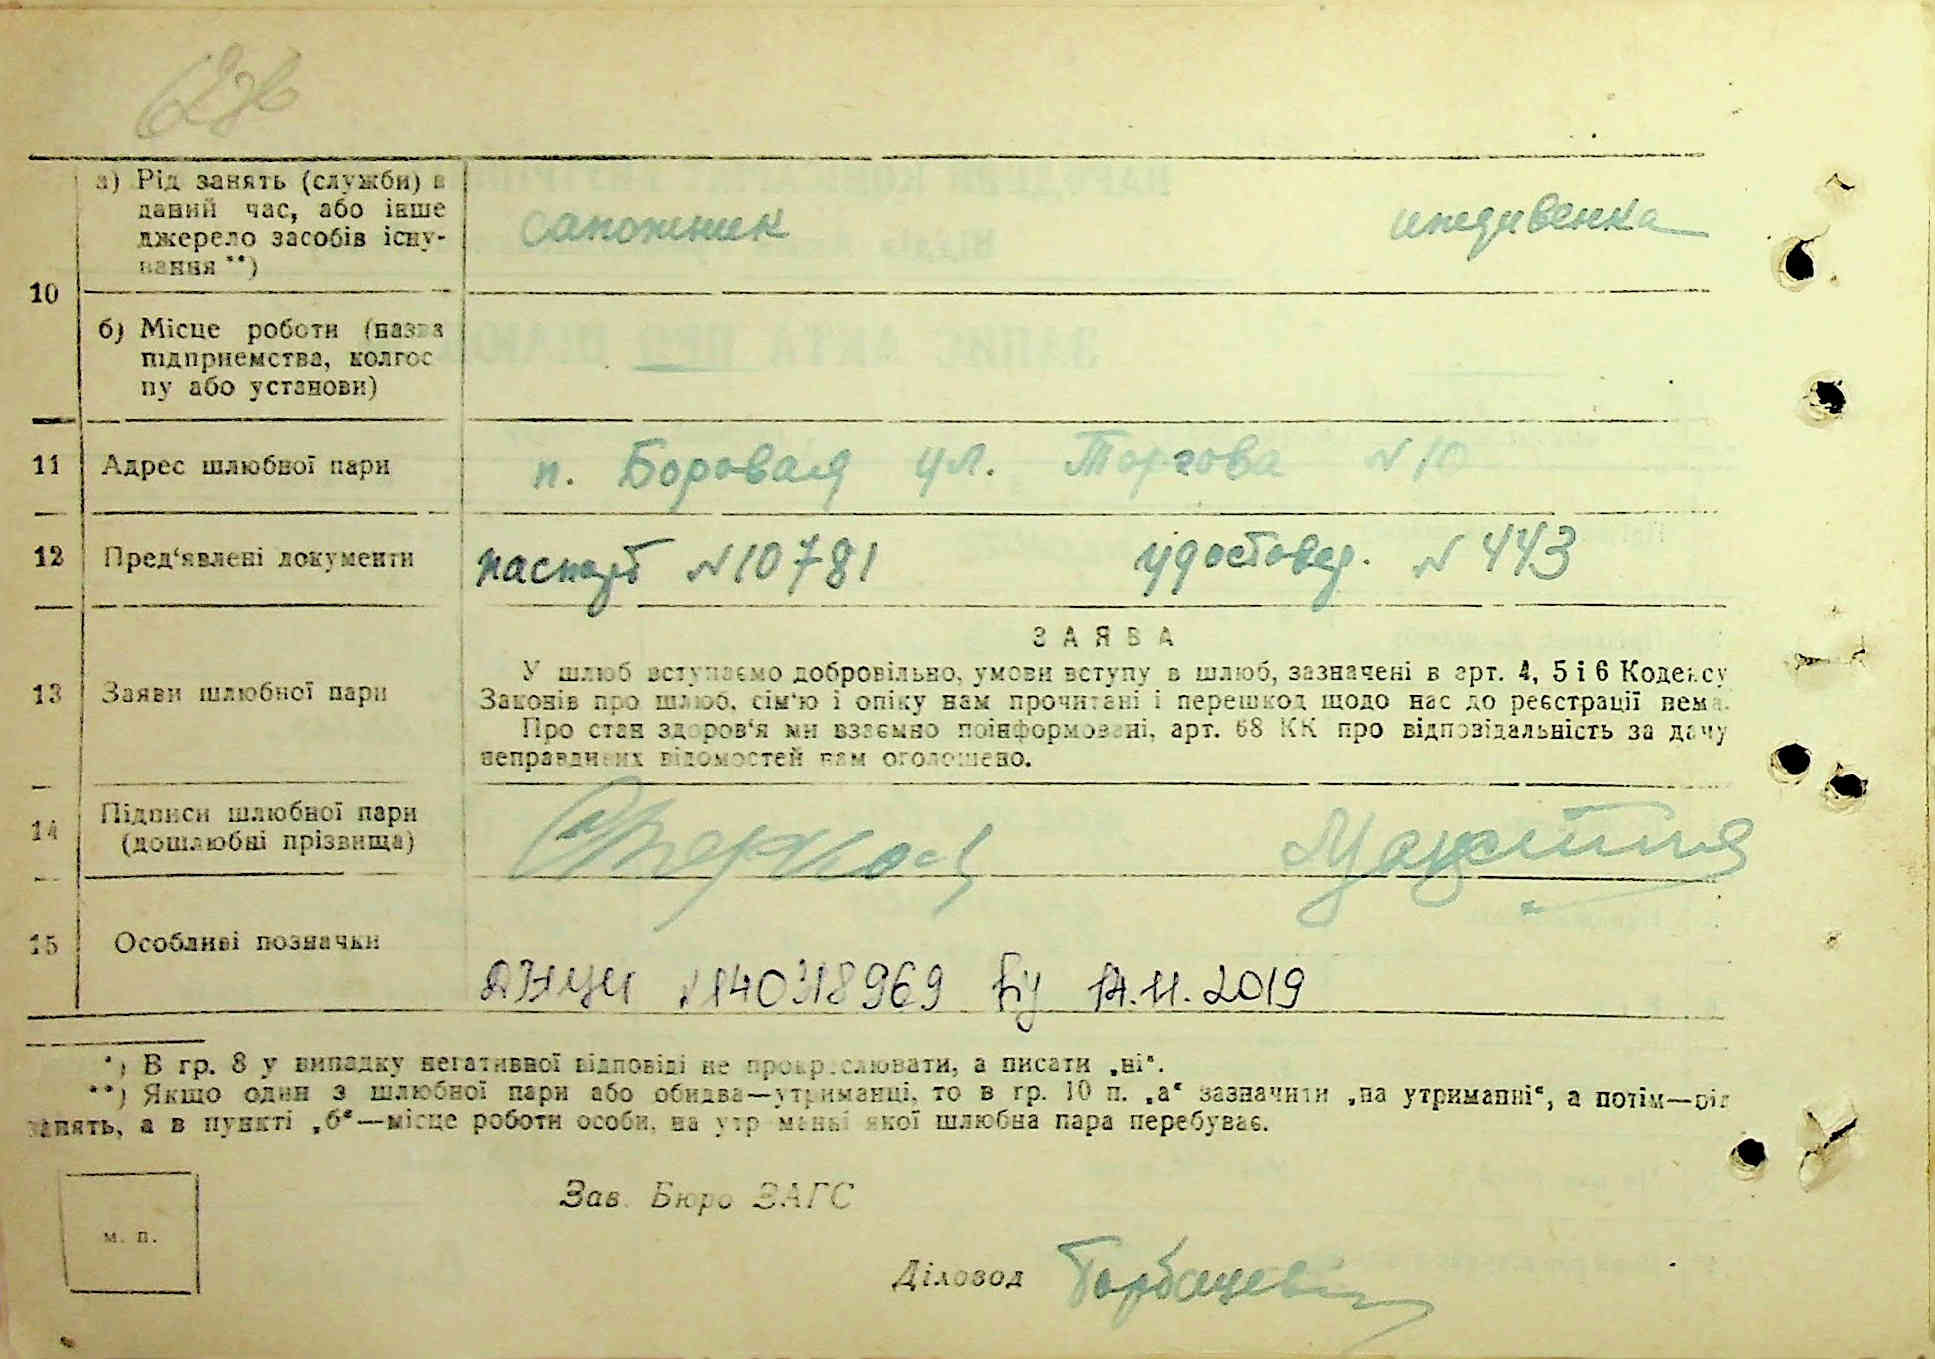 а) Рід занять (служби) в
даний час, або інше
джерело засобів існу-
вання **)
сапожник
иждивенка
10
б) Місце роботи (назва
підприємства, колгос
пу або установи)
11 Адрес шлюбної пари
п. Боровая ул. Торгова № 10
12 Пред‘явлені документи
паспорт № 10781 удостовер. № 443
ЗАЯВА
13 Заяви шлюбної пари
У шлюб вступаємо добровільно, умови вступу в шлюб, зазначені в арт. 4, 5 і 6 Кодексу
Законів про шлюб, сім‘ю і опіку нам прочитані і перешкод щодо нас до реєстрації нема.
Про стан здоров‘я ми взаємно поінформовані, арт. 68 КК про відповідальність за дачу
неправдивих відомостей нам оголошено.
14 Підписи шлюбної пари
(дошлюбні прізвища)
15 Особливі позначки
140318969 від 14.11.2019
*) В гр. 8 у випадку негативної відповіді не прокреслювати, а писати „ні“.
**) Якщо один з шлюбної пари або обидва—утриманці, то в гр. 10 п. „а“ зазначити „на утриманні“, а потім—рід
занять, а в пункті „б“—місце роботи особи, на утриманні якої шлюбна пара перебуває.
Зав. Бюро ЗАГС
м. п.
Діловод